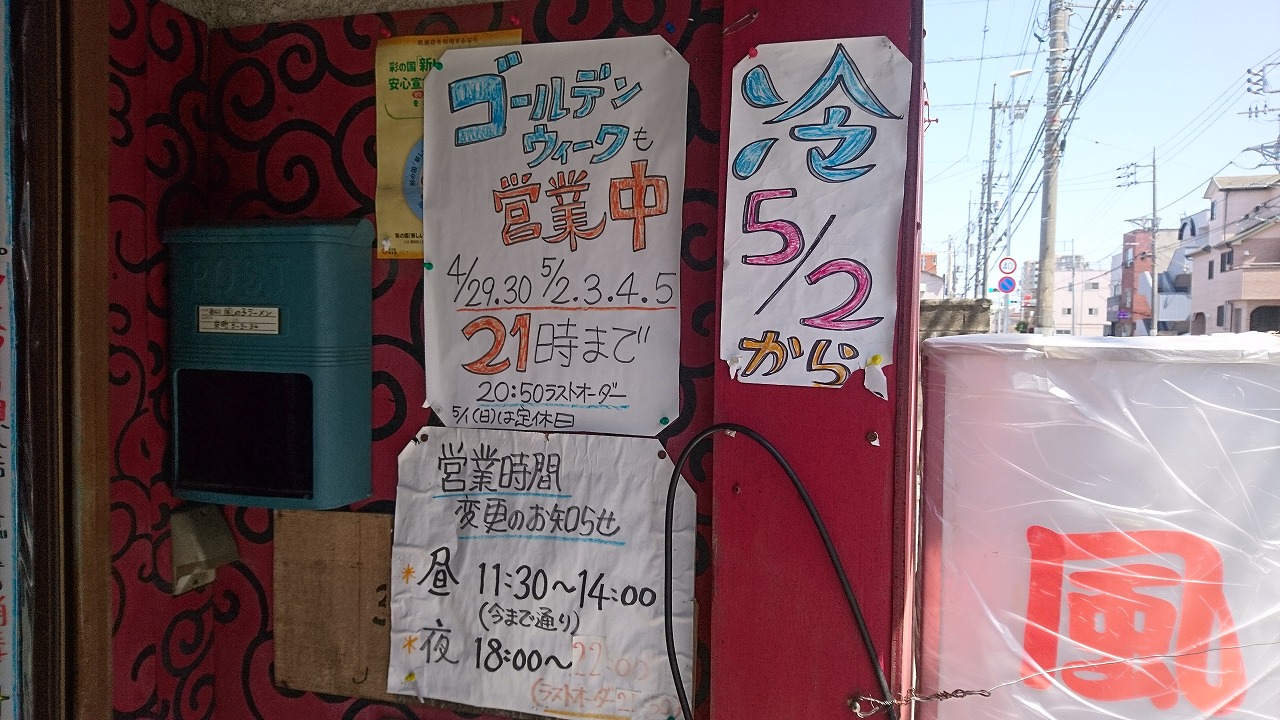 彩の国 新し
安心宣
ゴールデン
ウィークも
営業中
4/29.30 5/2.3.4.5
21時まで
20:50ラストオーダー
5/1(日)は定休日
冷
5/2
から
営業時間
変更のお知らせ
*昼 11:30〜14:00
(今まで通り)
*夜 18:00〜22:00
(ラストオーダー
POST
風の子ラーメン
40
風